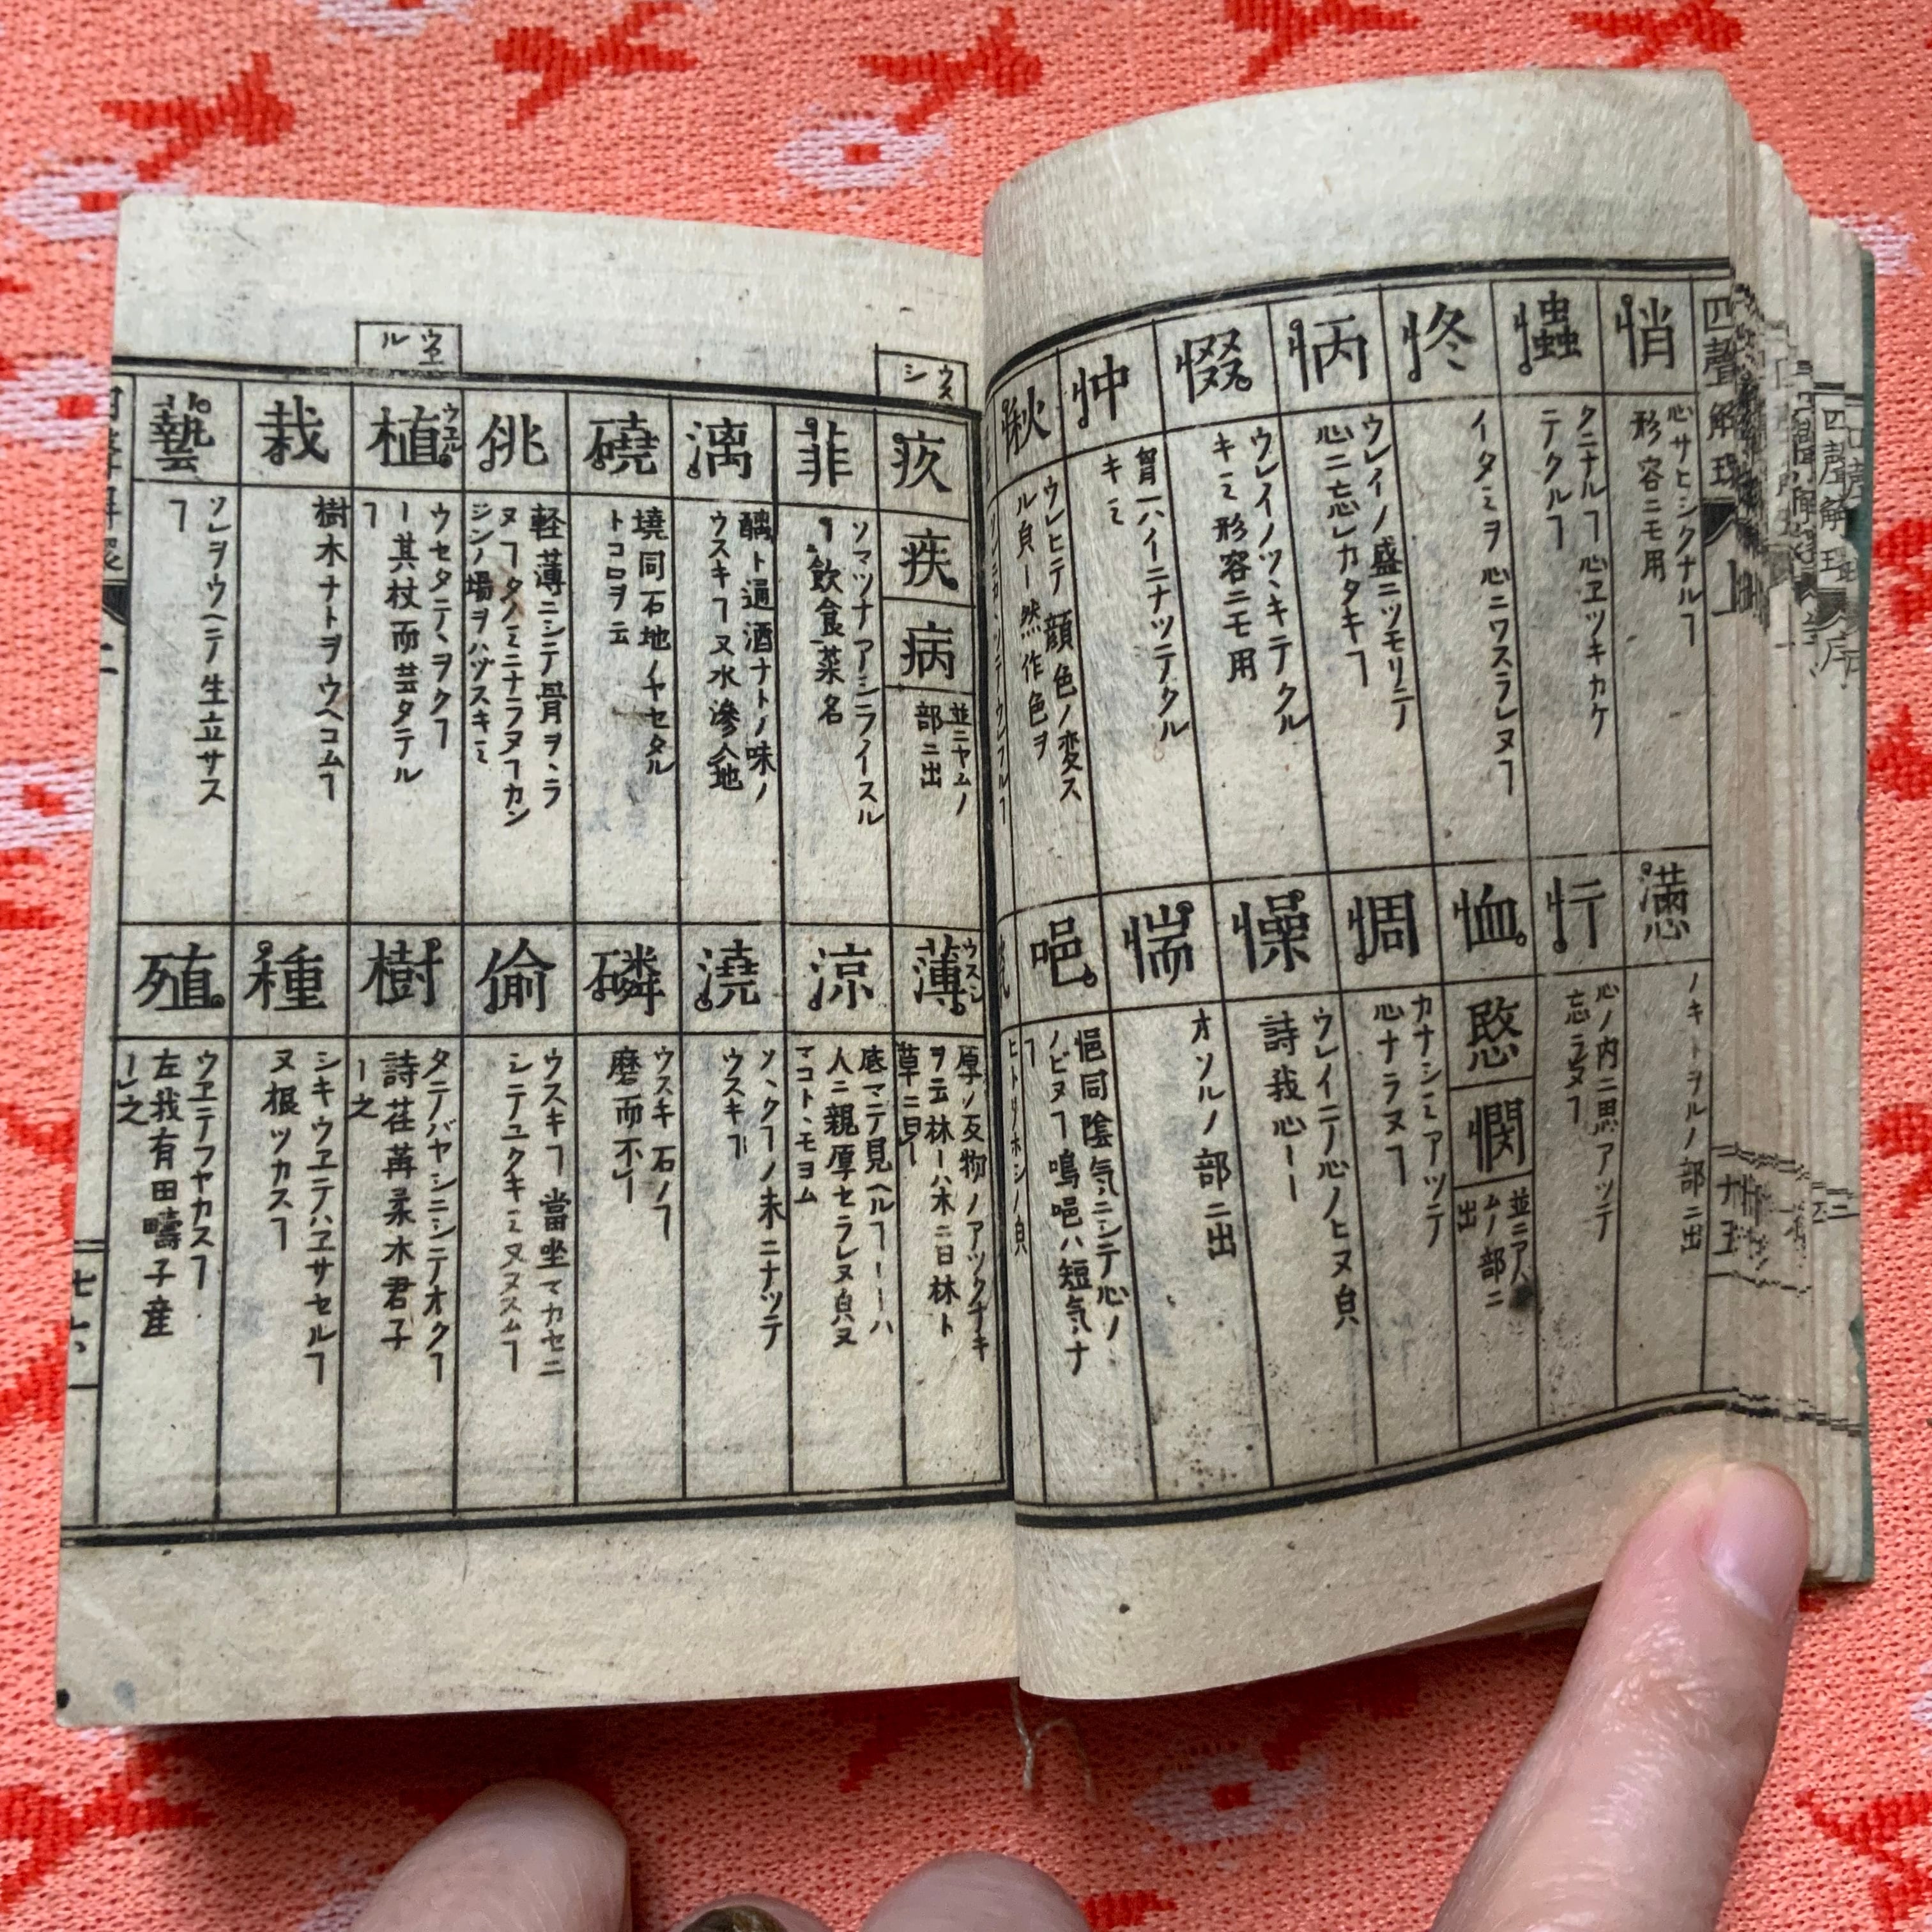 四聲解環
悄
心サヒシクナルヿ
形容ニモ用
クニナルヿ心ヱツキカケ
テクルヿ
イタミヲ心ニワスラレヌヿ
怲
ウレイノ盛ニツモリテ
心ニ忘レカタキヿ
惙
ウレイノツヽキテクル
キミ形容ニモ用
忡
胷一ハイニナツテクル
キミ
愀
ウレヒテ顔色ノ変ス
ル㒵ー然作色ヲ
懣
ノキトヲルノ部ニ出
心ノ内ニ思アツテ
忘ラヌヿ
恤
愍
憫
並ニアハ
ムノ部ニ
出
惆
カナシミアツテ
心ナラヌヿ
懆
ウレイニテ心ノヒヌ㒵
詩我心ーー
惴
オソルノ部ニ出
唈
悒同陰気ニシテ心ノ
ノビヌヿ嗚唈ハ短気ナ
ヿ
ウスシ
疚
疾
病
並ニヤムノ
部ニ出
菲
ソマツナアシライスル
ヿ飲食菜名
漓
醨ト通酒ナトノ味ノ
ウスキヿ又水滲入地
磽
墝同石地ノヤセタル
トコロヲ云
佻
軽薄ニシテ骨ヲヽラ
ヌヿタノミニナラヌヿカン
ジンノ場ヲハヅスキミ
ウヱル
植
ウヱル
ウセタテヽヲクヿ
ー其杖而芸タテル
ヿ
栽
樹木ナトヲウヘコムヿ
藝
ソレヲウヘテ生立サス
ヿ
薄
ウスシ
厚ノ反物ノアツクナキ
ヲ云林ーハ木ニ曰林ト
草ニ曰ー
涼
底マテ見ヘルヿーーハ
人ニ親厚セラレヌ㒵又
マコトヽモヨム
澆
ソヽクヿノ末ニナツテ
ウスキヿ
磷
ウスキ石ノヿ
磨而不ー
偷
ウスキヿ當坐マカセニ
シテユクキミ又ヌスムヿ
樹
タテバヤシニシテオクヿ
詩荏苒柔木君子
ー之
種
シキウヱテハヱサセルヿ
又根ツカスヿ
殖
ウヱテフヤカスヿ
左我有田疇子産
ーレ之